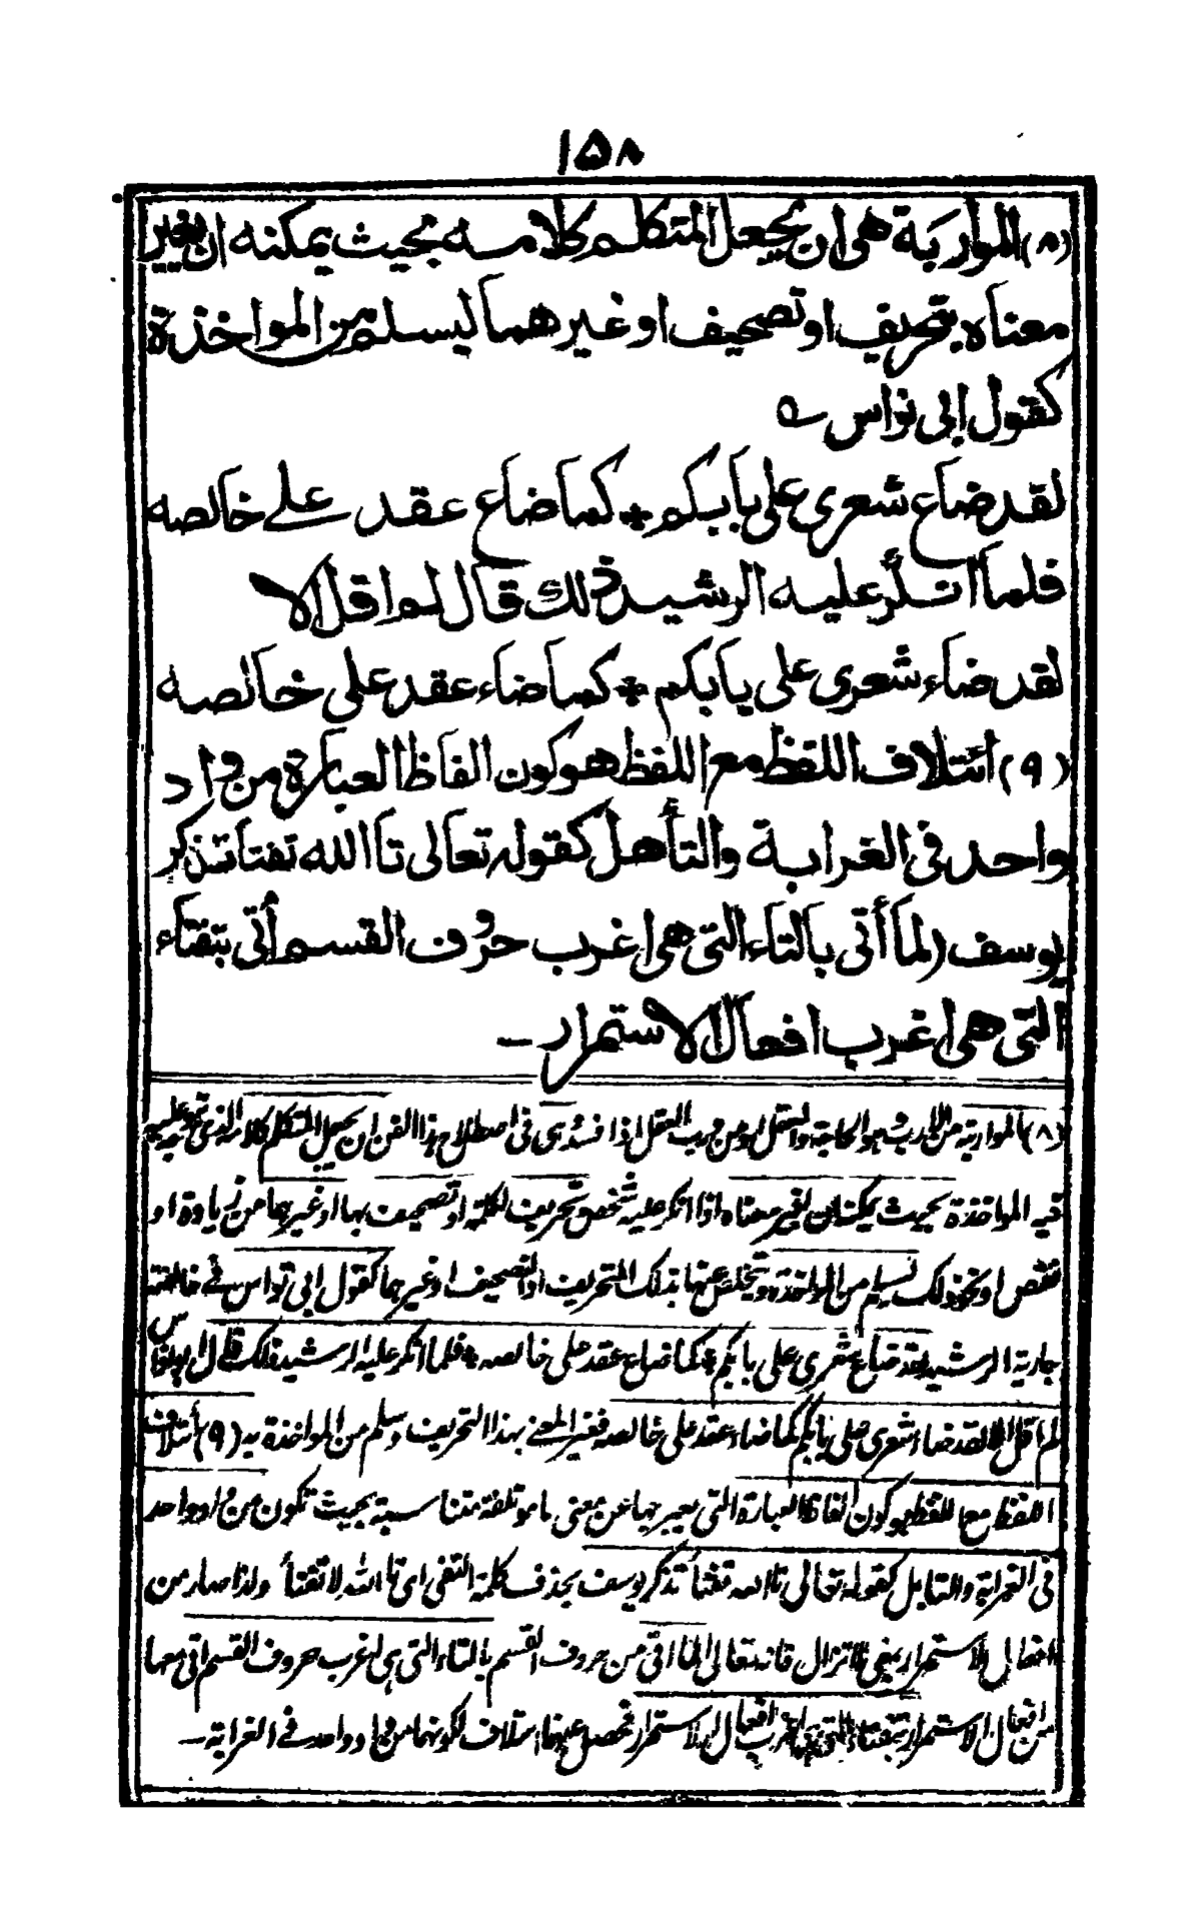 ١٥٨
(٨) المواربة هى ان يجعل المتكلم كلامه بحيث يمكنه ان يغير
معناه بتحريف او تصحيف او غيرهما ليسلم من المواخذة
كقول ابى نواس ؎
لقد ضاع شعرى على بابكم * كما ضاع عقد على خالصه
فلما انكر عليه الرشيد ذلك قال لم اقل الا
لقد ضاء شعرى على بابكم * كما ضاء عقد على خالصه
(٩) ائتلاف اللفظ مع اللفظ هو كون الفاظ العبارة من واد
واحد فى الغرابة والتأهل كقوله تعالى تا الله تفتا تذكر
يوسف (لما أتى بالتاء التى هى اغرب حروف القسم أتى بتفتاء
التى هى اغرب افعال الاستمرار ـ
(٨) المواربة من الارب و هو الحاجة والعقل او من ورب العقل اذا فسد هى فى اصطلاح هذا الفن ان يجعل المتكلم كلامه الذى عليه
فيه المواخذة بحيث يمكنه ان يغير معناه اذا انكر عليه شخص بتحريف لكلمة او تصحيف بها او غيرهما من زيادة او
نقص او نحو ذلك ليسلم من المواخذة ويتخلص عنها بذلك التحريف او التصحيف او غيرهما كقول ابى نواس فى خالصة
جارية الرشيد لقد ضاع شعرى على بابكم * كما ضاع عقد على خالصه * فلما انكر عليه الرشيد ذلك قال ابو نواس
لم اقل الا لقد ضاء شعرى على بابكم كما ضاء عقد على خالصه فغير المعنى بهذا التحريف وسلم من المواخذة به (٩) أئتلاف
اللفظ مع اللفظ هو كون الفاظ العبارة التى يعبر بها عن معنى ما موتلفة متناسبة بحيث تكون من واد واحد
فى الغرابة والتاهل كقوله تعالى تا الله تفتأ تذكر يوسف بحذف كلمة النفى اى تا الله لا تفتأ ولذا صار من
افعال الاستمرار بمعنى لا تزال فانه تعالى لما اتى من حروف القسم بالتاء التى هى اغرب حروف القسم اتى معها
من افعال الاستمرار بتفتاء التى هى اغرب افعال الاستمرار فحصل بينهما ائتلاف لكونهما من واد واحد فى الغرابة ـ